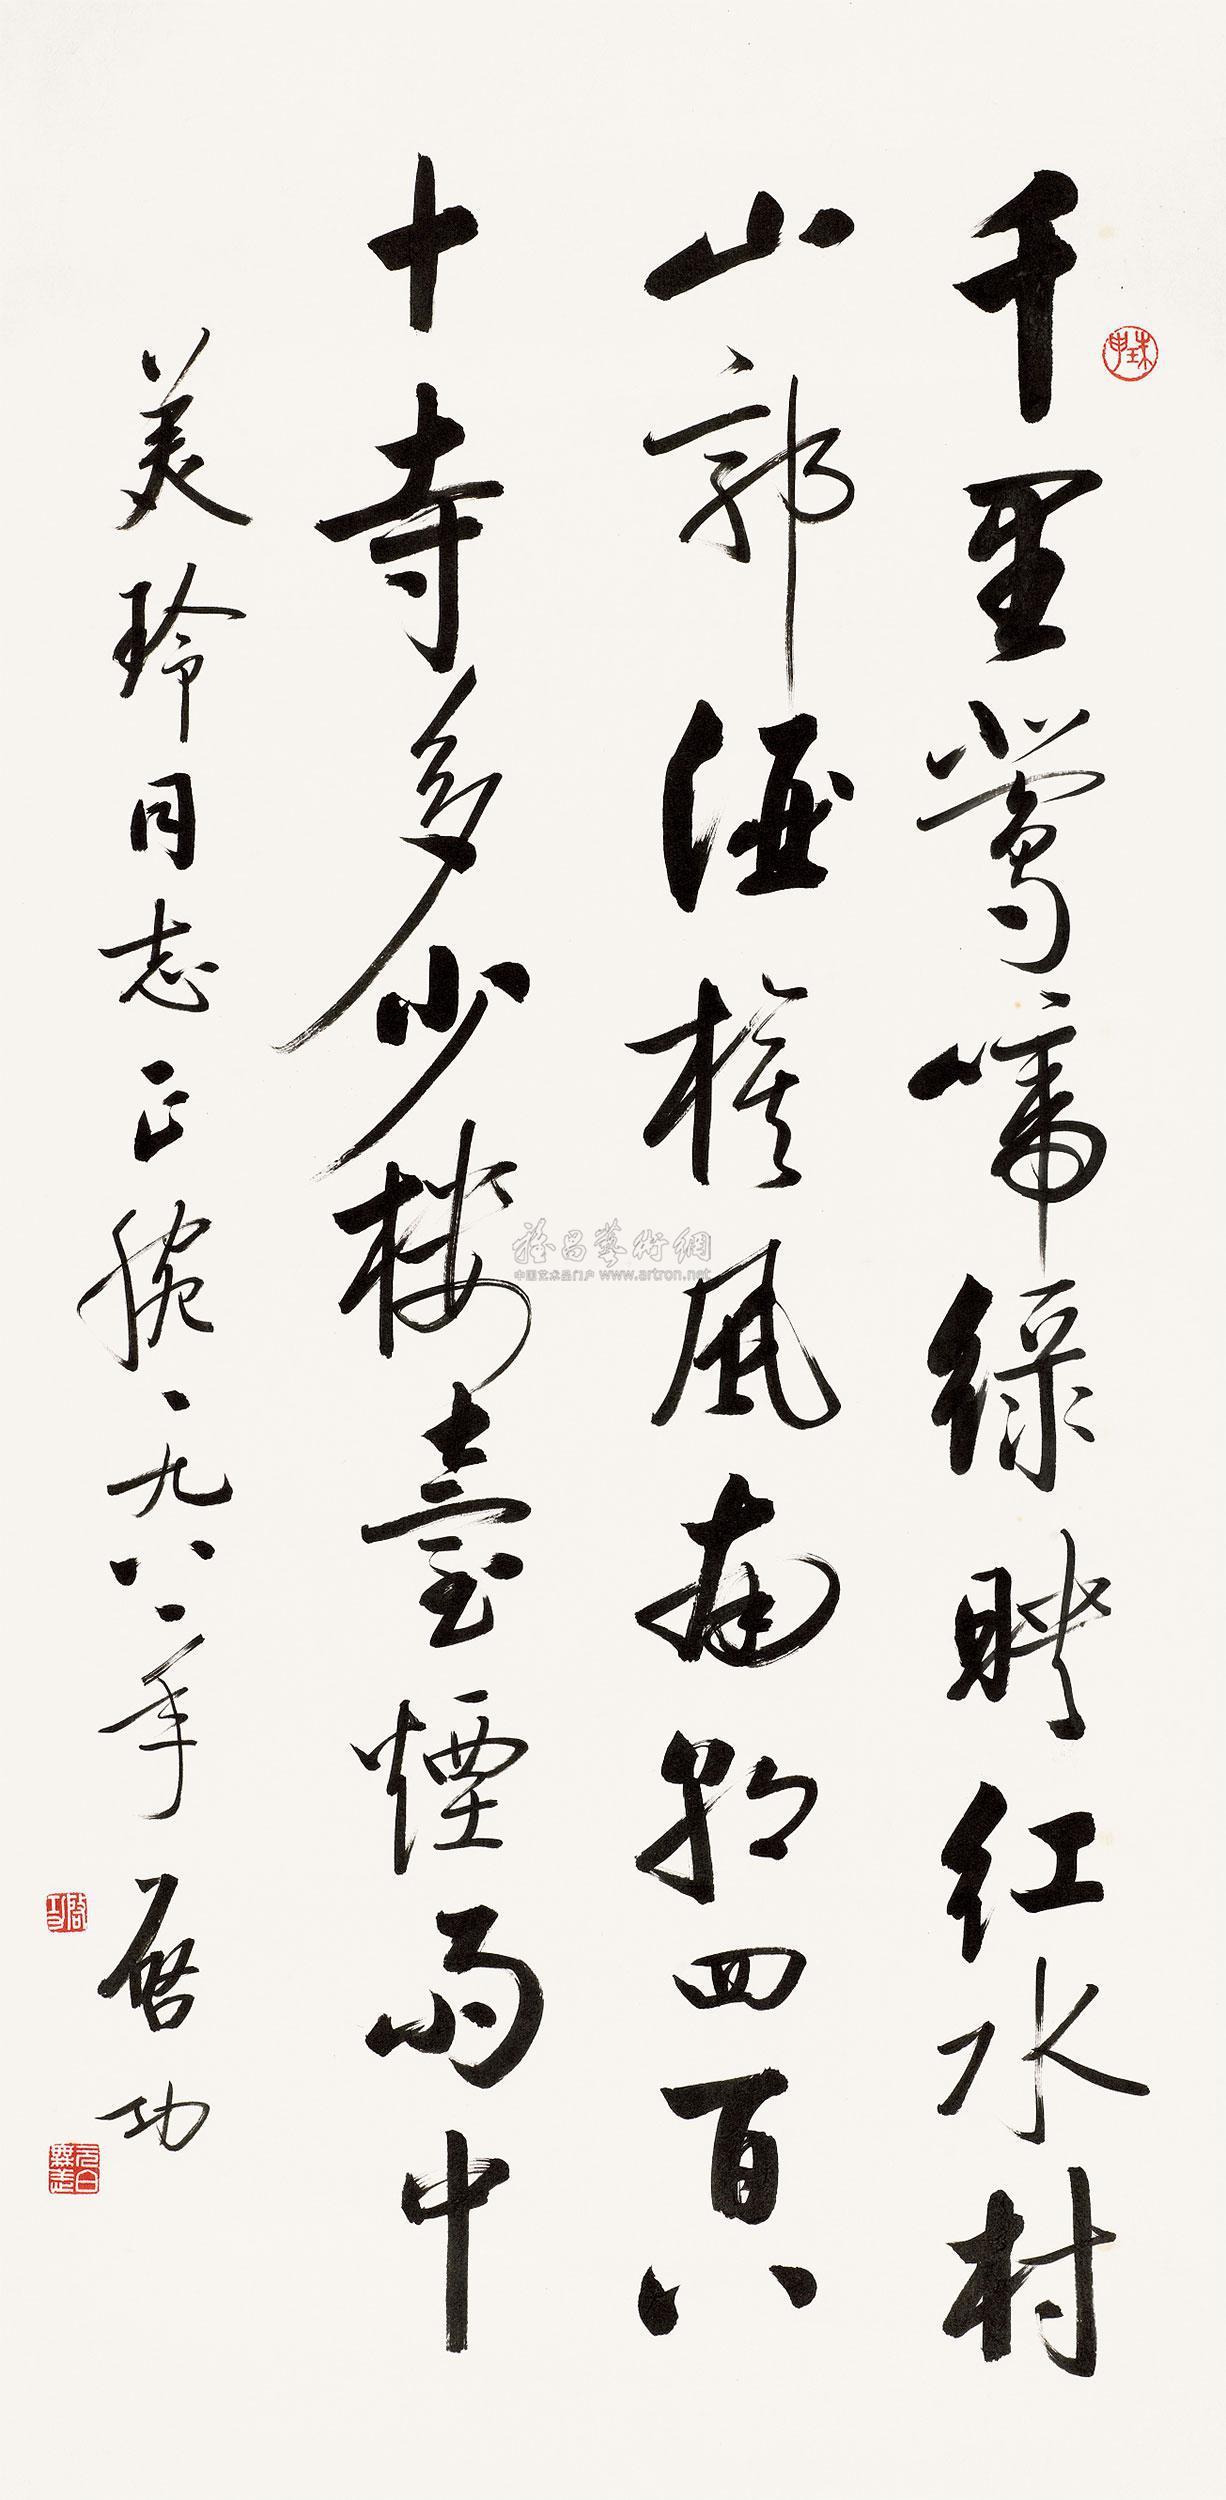 千里鶯啼綠映紅水村
山郭酒旗風南朝四百八
十寺多少樓臺煙雨中
美玲同志正腕一九八一年 启功
珠申
啟功
元白無恙
雅昌藝術網
中国艺术品门户 www.artron.net